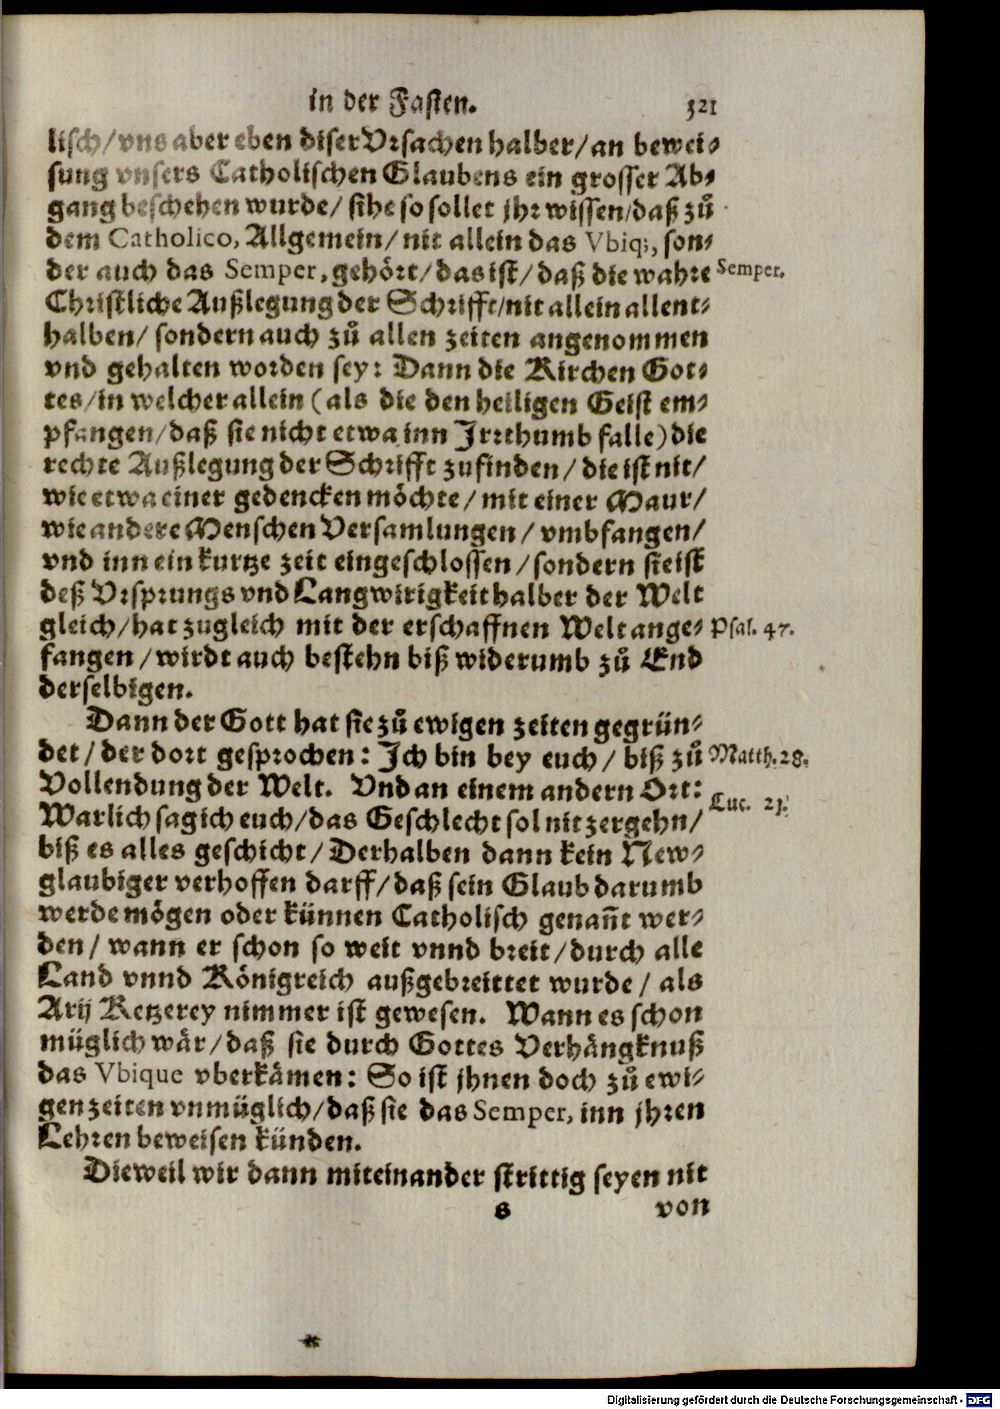 in der Fasten. 321
lisch/vns aber eben diser Vrsachen halber/an bewei-
sung vnsers Catholischen Glaubens ein grosser Ab-
gang beschehen wurde/ sihe so sollet jhr wissen/daß zů
dem Catholico, Allgemein/ nit allein das Vbiq;, son-
der auch das Semper, gehört/das ist/daß die wahre Semper.
Christliche Außlegung der Schrifft/nit allein allent-
halben/ sondern auch zů allen zeiten angenommen
vnd gehalten worden sey: Dann die Kirchen Got-
tes/in welcher allein (als die den heiligen Geist em-
pfangen/daß sie nicht etwa inn Jrrthumb falle) die
rechte Außlegung der Schrifft zufinden/die ist nit/
wie etwa einer gedencken möchte/mit einer Maur/
wie andere Menschen Versamlungen/ vmbfangen/
vnd inn ein kurtze zeit eingeschlossen/sondern sie ist
deß Vrsprungs vnd Langwirigkeit halber der Welt
gleich/hat zugleich mit der erschaffnen Welt ange- Psal. 47.
fangen/wirdt auch bestehn biß widerumb zů End
derselbigen.
Dann der Gott hat sie zů ewigen zeiten gegrün-
det/der dort gesprochen: Jch bin bey euch/ biß zů Matth. 28.
Vollendung der Welt. Vnd an einem andern Ort:
Luc. 21.
Warlich sag ich euch/das Geschlecht sol nit zergehn/
biß es alles geschicht/Derhalben dann kein New-
glaubiger verhoffen darff/daß sein Glaub darumb
werde mögen oder künnen Catholisch genañt wer-
den/ wann er schon so weit vnnd breit/durch alle
Land vnnd Königreich außgebreittet wurde/ als
Arij Ketzerey nimmer ist gewesen. Wann es schon
müglich wär/daß sie durch Gottes Verhängknuß
das Vbique vberkämen: So ist jhnen doch zů ewi-
gen zeiten vnmüglich/daß sie das Semper, inn jhren
Lehren beweisen künden.
Dieweil wir dann miteinander strittig seyen nit
s von
Digitalisierung gefördert durch die Deutsche Forschungsgemeinschaft - DFG